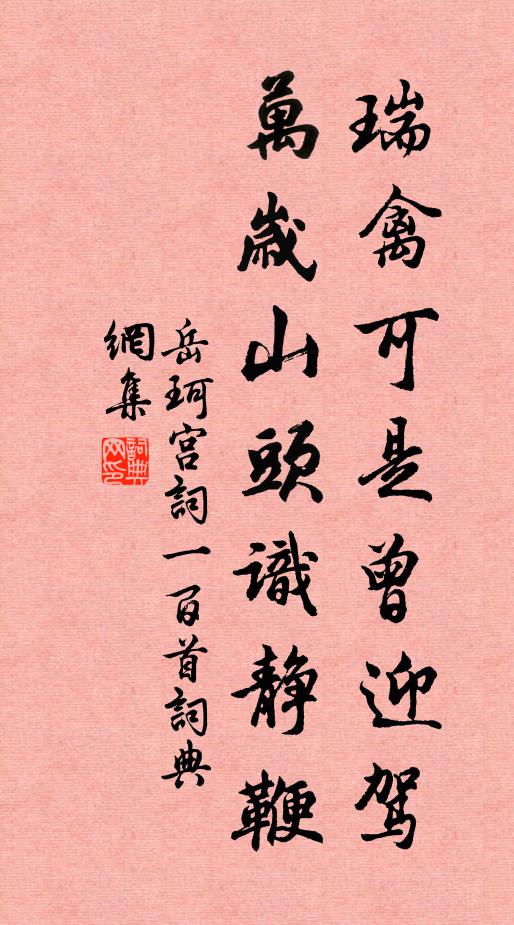 瑞禽可是曾迎駕
萬歲山頭識静鞭
岳珂宫詞一百首詞典
網集
詞典
网印